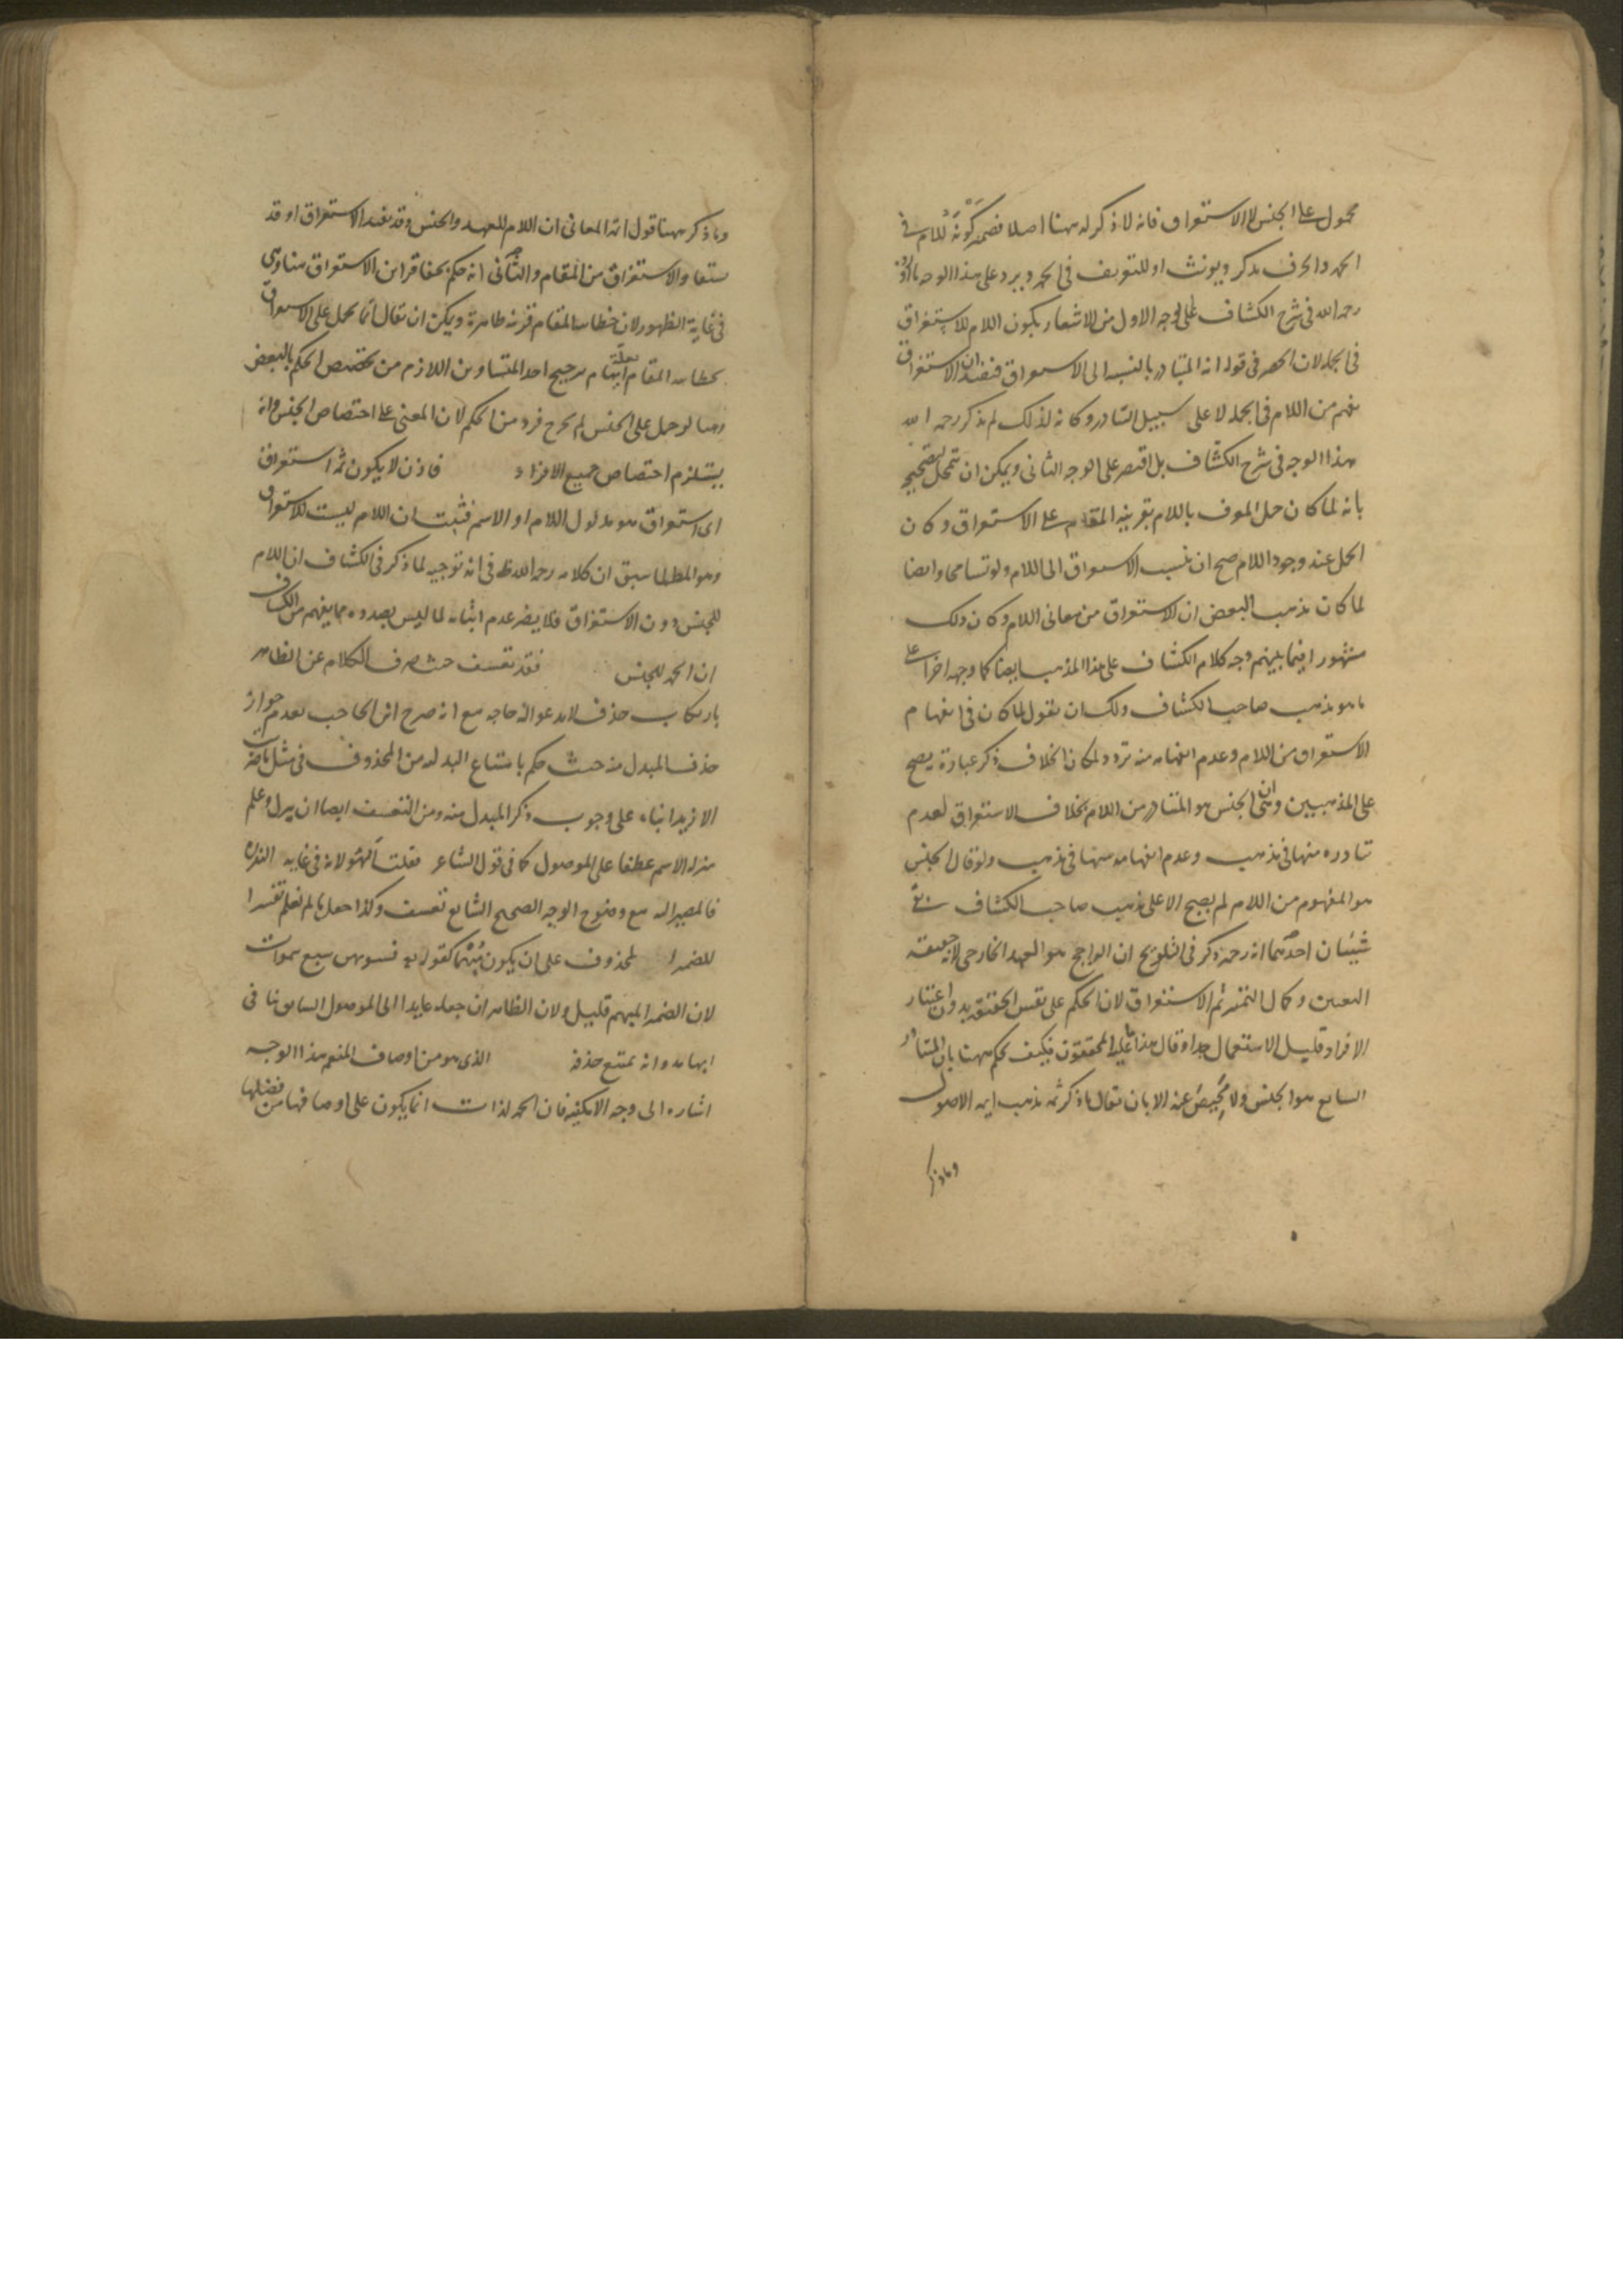 محمول على الجنس لا الاستغراق فانه لا ذكر له ههنا اصلا فضمير كونه للام في
الحمد والحرف يذكر ويونث او للتعريف في الحمد ويرد على هذا الوجه ما اورده
رحمه الله في شرح الكشاف على الوجه الاول من الاشعار بكون اللام للاستغراق
في الجملة لان الحصر في قوله انه المتبادر بالنسبة الى الاستغراق فيفيد ان الاستغراق
يفهم من اللام في الجملة لا على سبيل التبادر وكانه لذلك لم يذكر رحمه الله
هذا الوجه في شرح الكشاف بل اقتصر على الوجه الثاني ويمكن ان يتمحل لتصحيحه
بانه لما كان حمل المعرف باللام بقرينة المقام على الاستغراق وكان
الحمل عند وجود اللام صح ان ينسب الاستغراق الى اللام ولو تسامحا وايضا
لما كان مذهب البعض ان الاستغراق من معاني اللام وكان ذلك
مشهورا فيما بينهم وجه كلام الكشاف على هذا المذهب ايضا كما وجهه اخرا على
ما هو مذهب صاحب الكشاف ولك ان تقول لما كان في انفهام
الاستغراق من اللام وعدم انفهامه منه تردد لمكان الخلاف ذكر عبارة يصح
على المذهبين وهي ان الجنس هو المتبادر من اللام بخلاف الاستغراق لعدم
تبادره منها في مذهب وعدم انفهامه منها في مذهب ولو قال الجنس
هو المفهوم من اللام لم يصح الا على مذهب صاحب الكشاف بقي
شيئان احدهما انه رحمه ذكر في التلويح ان الراجح هو العهد الخارجي لانه حقيقة
التعيين وكمال التمييز ثم الاستغراق لان الحكم على نفس الحقيقة بدون اعتبار
الافراد قليل الاستعمال جدا وقال هذا ما عليه المحققون فكيف يحكم ههنا بان المتبادر
الشايع هو الجنس ولا محيص عنه الا بان يقال ما ذكر ثمه مذهب ايمه الاصول
وما ذكر
وما ذكر ههنا قول ائمة المعاني ان اللام للعهد والجنس وقد يفيد الاستغراق او قد
يستفاد الاستغراق من المقام والثاني انه حكم بخفاء قراين الاستغراق هنا وهي
في غاية الظهور لان خطابية المقام قرينة ظاهرة ويمكن ان يقال انما يحمل على الاستغراق
بخطابية المقام لئلا يلزم ترجيح احد المتساويين اللازم من تخصيص الحكم بالبعض
وههنا لو حمل على الجنس لم يخرج فرد من الحكم لان المعنى على اختصاص الجنس وانه
يستلزم اختصاص جميع الافراد فاذن لا يكون ثمه استغراق
اي استغراق هو مدلول اللام او الاسم فثبت ان اللام ليست للاستغراق
وهو المط لما سبق ان كلامه رحمه الله ظ في انه توجيه لما ذكر في الكشاف ان اللام
للجنس دون الاستغراق فلا يضر عدم اثباته لما ليس بصدده مما يفهم من الكشاف
ان الحمد للجنس فقد تعسف حيث صرف الكلام عن الظاهر
بارتكاب حذف لا يدعو اليه حاجة مع انه صرح ابن الحاجب بعدم جواز
حذف المبدل منه حيث حكم بامتناع البدلية من المحذوف في مثل ما ضربت
الا زيدا بناء على وجوب ذكر المبدل منه ومن التعسف ايضا ان ينزل وعلم
منزلة الاسم عطفا على الموصول كما في قول الشاعر فقلت أهي لانه في غاية الندرة
فالمصير اليه مع وضوح الوجه الصحيح الشايع تعسف وكذا جعل ما لم نعلم تفسيرا
للضمير المحذوف على ان يكون مبهما كقوله تع فسويهن سبع سموات
لان الضمير المبهم قليل ولان الظاهر ان جعله عايدا الى الموصول السابق ينافي
ابهامه وانه يمتنع حذفه الذي هو من اوصاف المنعم هذا الوجه
اشارة الى وجه الامكنية فان الحمد لذات انما يكون على اوصافها من فضلها